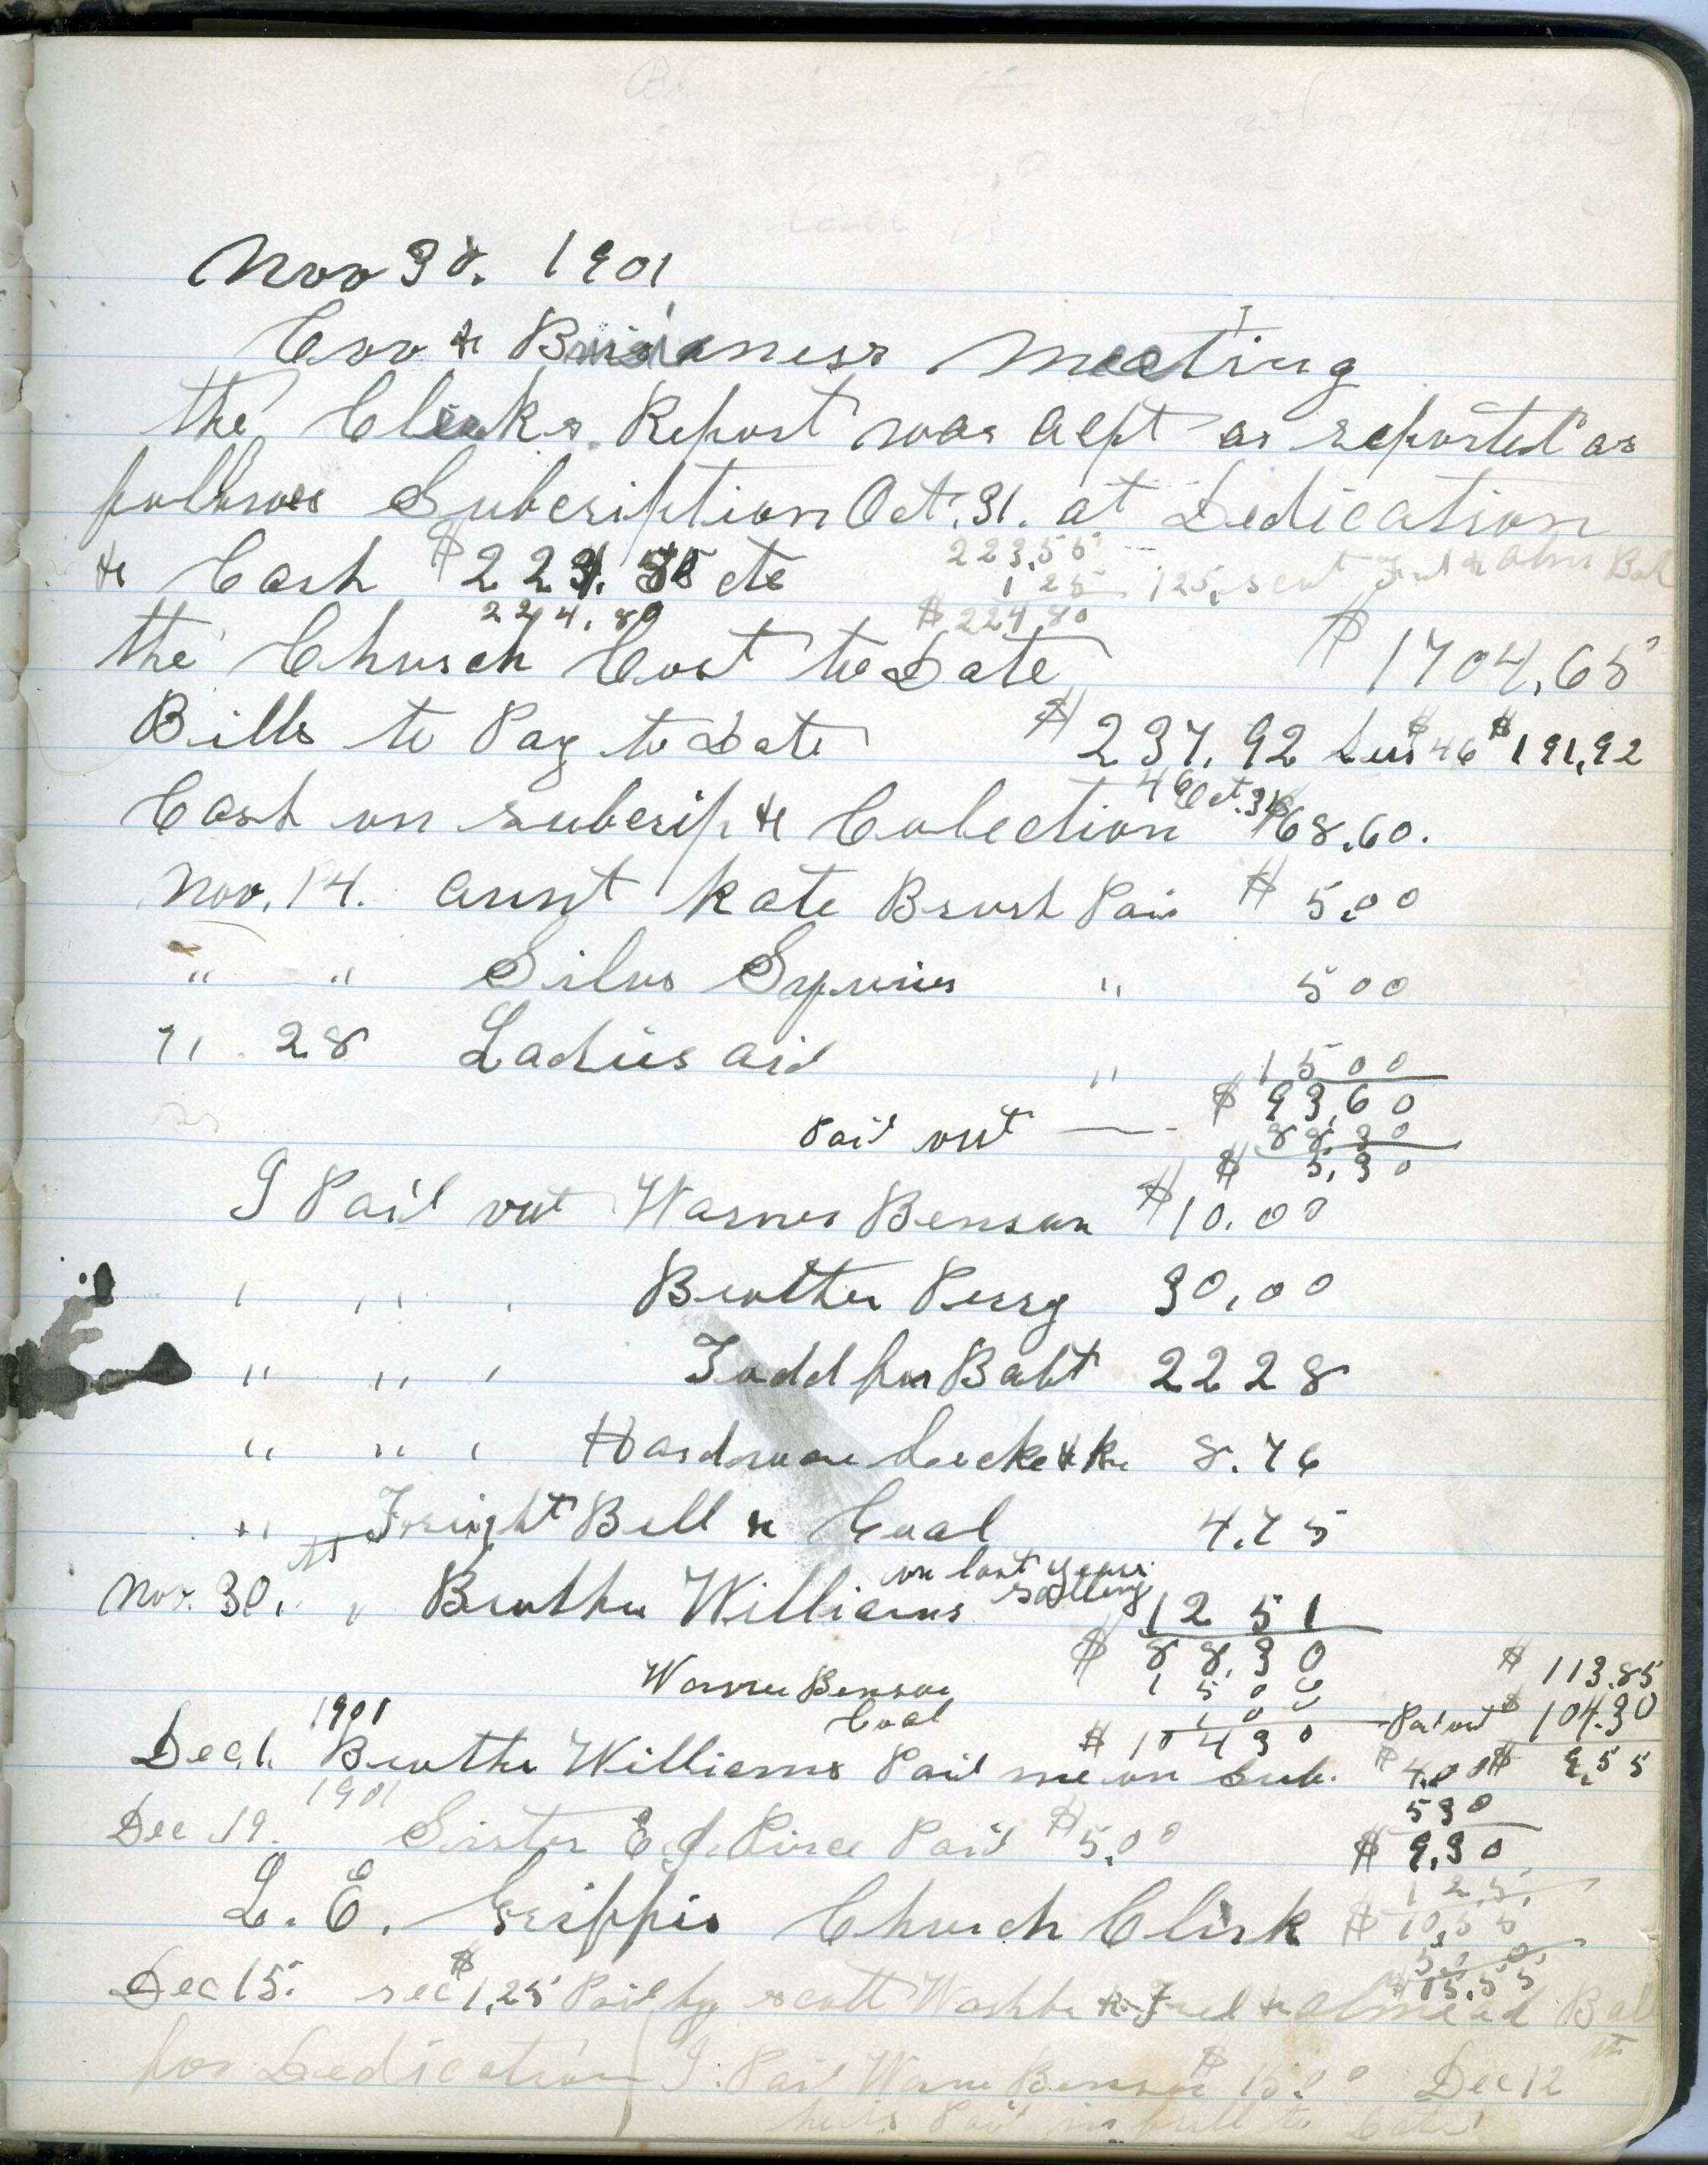 Nov 30. 1901
Cov & Buisaness Meeting
the Clerks Report was acpt as reported as
follows Subcription Oct. 31. at Dedication
& Cash $ 223.55 cts
223,55
1 25 125, sent Fred & Alm Ball
224.80 $ 224 80
the Church Cost to Date $ 1704,65
Bills to Pay to Date $ 237,92 Less $46 $191,92
46
Cash on subcrip & Colection Oct. 31 $68,60.
Nov. 14. aunt Kate Brush Paid $ 5,00
" " Silus Squires " 500
" 28 Ladies aid " 1500
$ 93,60
Paid out — 88 30
$ 5,30
I Paid out Warner Benson $10.00
" " " Brother Perry 30,00
" " " Todd for Balt 22 28
" " " Hardware Locke & 8.76
" " Freight Bell & Coal 4.75
on last years
Nov. 30. " Brother Williams sallery 12 51
$ 88,30
Warner Benson 1 5 00 $ 113.85
Coal 1 00 Paid out $ 104.30
1901 $ 104 30
Dec 1. Brother Williams Paid me on Sub. $ 4,00 $ 9,55
1901 5 30
Dec 19. Sister E. J. Pirce Paid $5,00 $ 9,30
1 25,
L. E. Grippis Church Clirk $ 10,55
5,00
$ 15,55
Dec 15. rec $1,25 Paid by scott & Fred & Almead Ball
for Dedication I Paid Warne Benson $ 15.00 Dec 12
he is Paid in full to Date